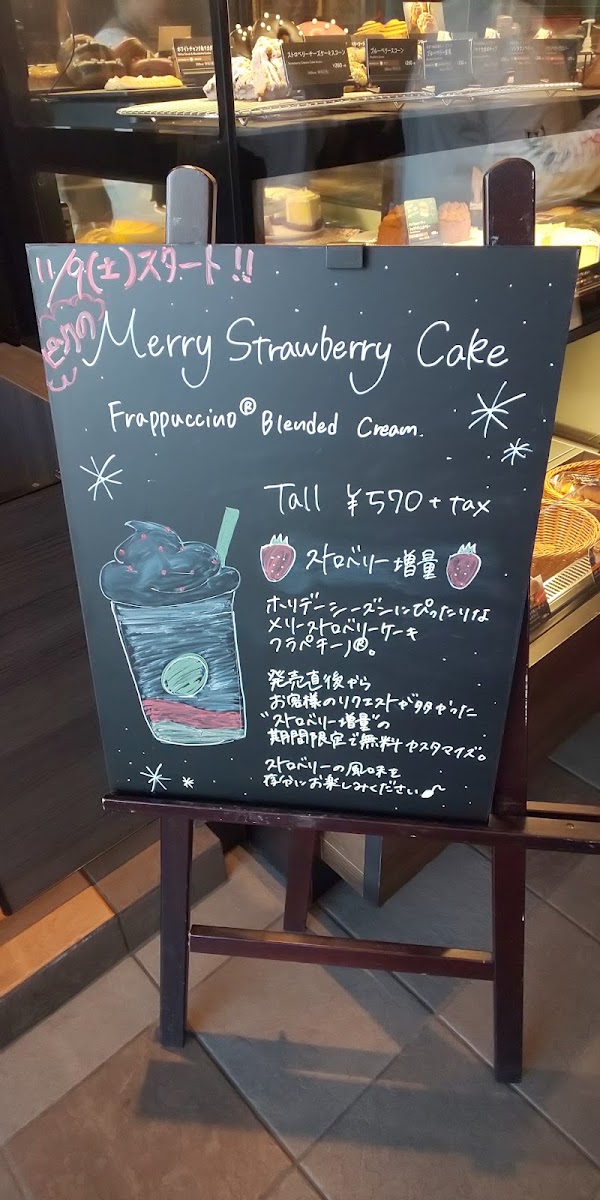 ストロベリーチーズケーキスコーン
ブルーベリースコーン
11/9(土)スタート!!
ピンクの
Merry Strawberry Cake
Frappuccino® Blended Cream.
Tall ¥570+tax
ストロベリー増量
ホリデーシーズンにぴったりな
メリーストロベリーケーキ
フラペチーノ®。
発売直後から
お客様のリクエストが多かった
"ストロベリー増量"の
期間限定で無料カスタマイズ。
ストロベリーの風味を
存分にお楽しみください♪